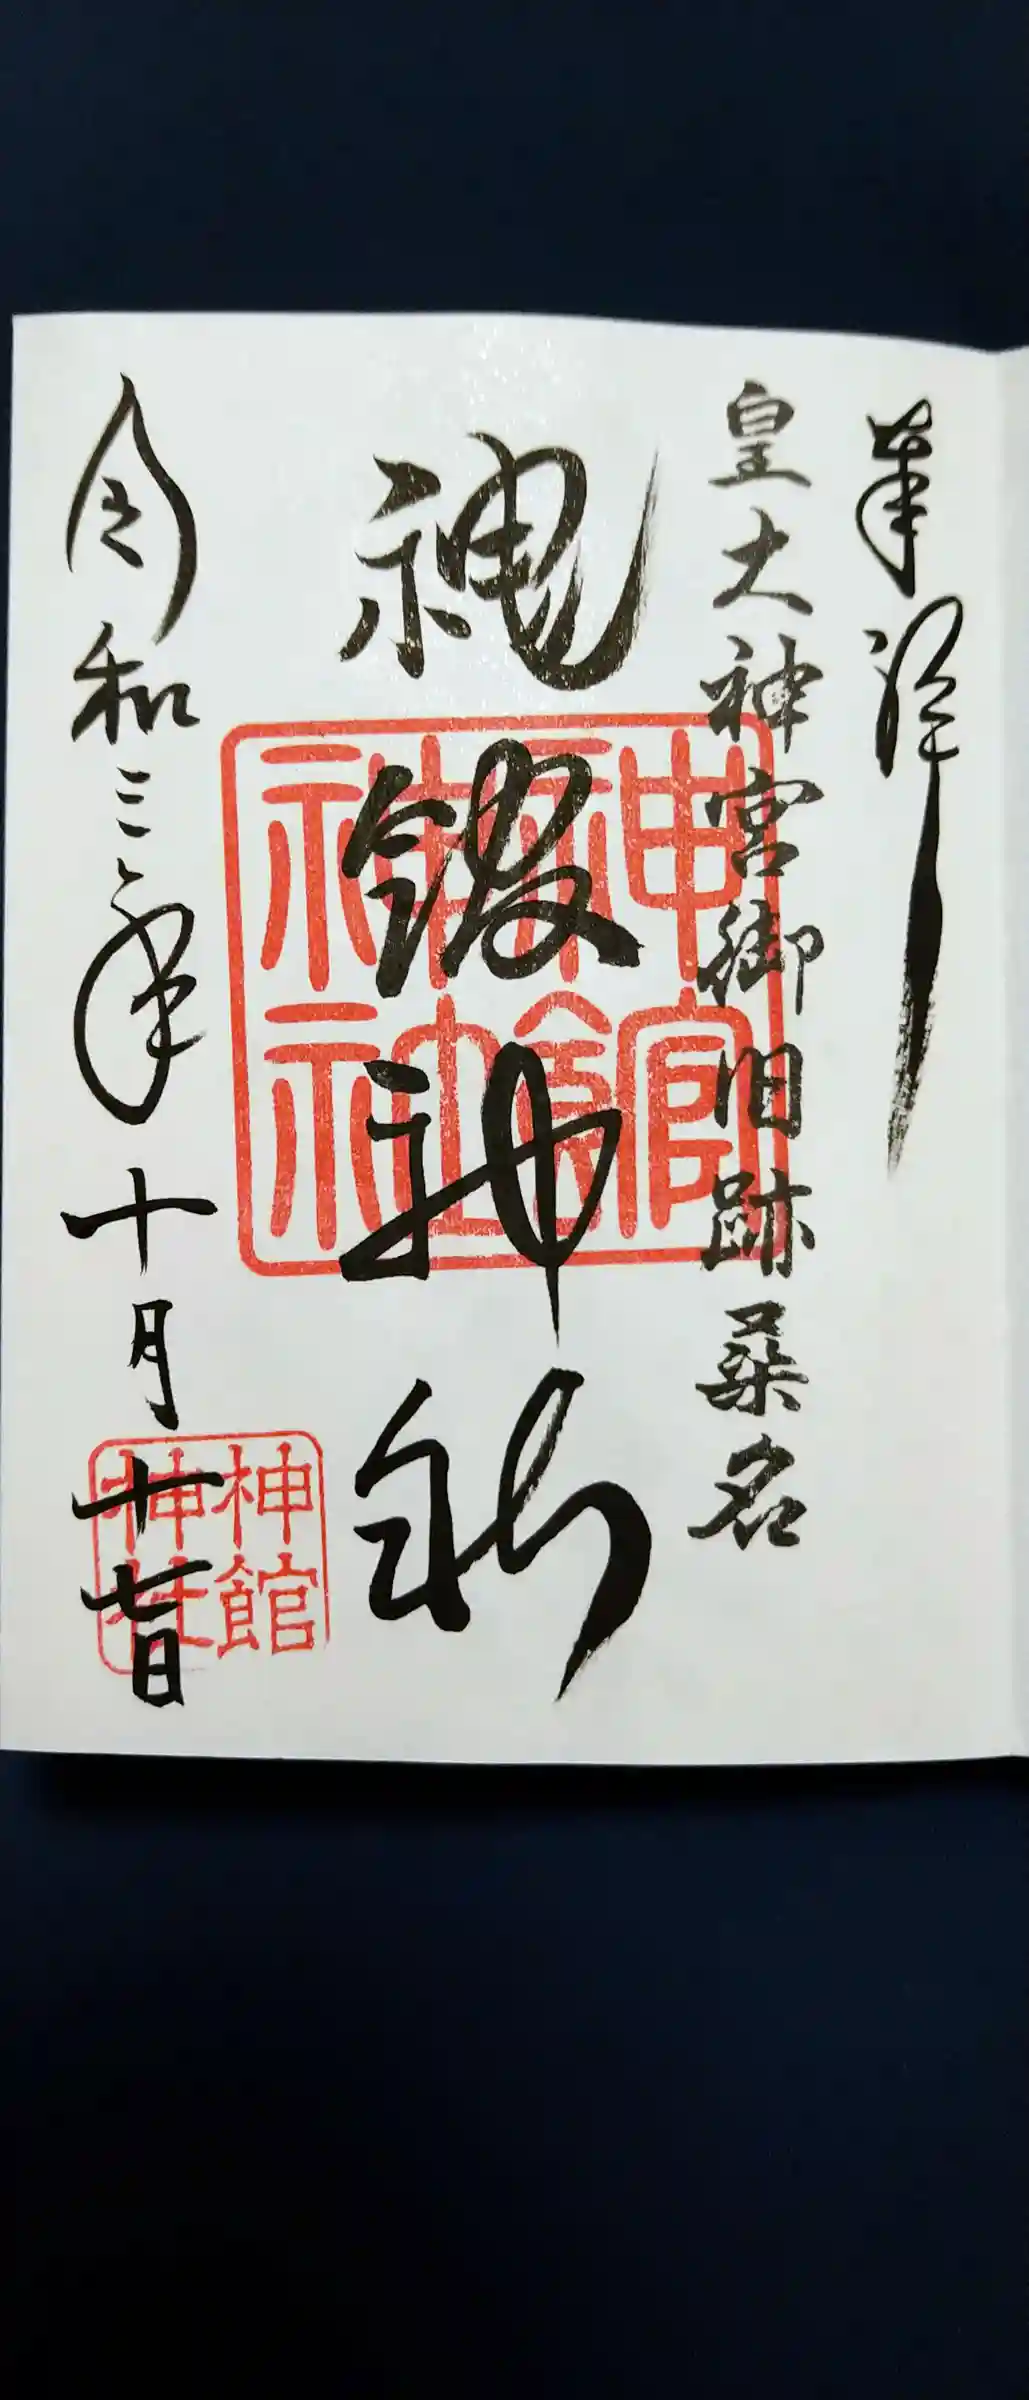 奉拝
皇大神宮御旧跡桑名
神館神社
神館神社
令和三年十月十七日
神館神社